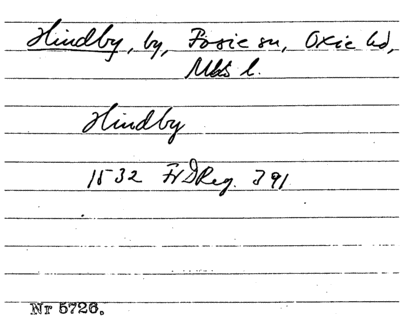 Hindby, by, Fosie sn, Oxie hd,
Mbs l.
Hindby
1532 FrDReg. 391
Nr 5726.